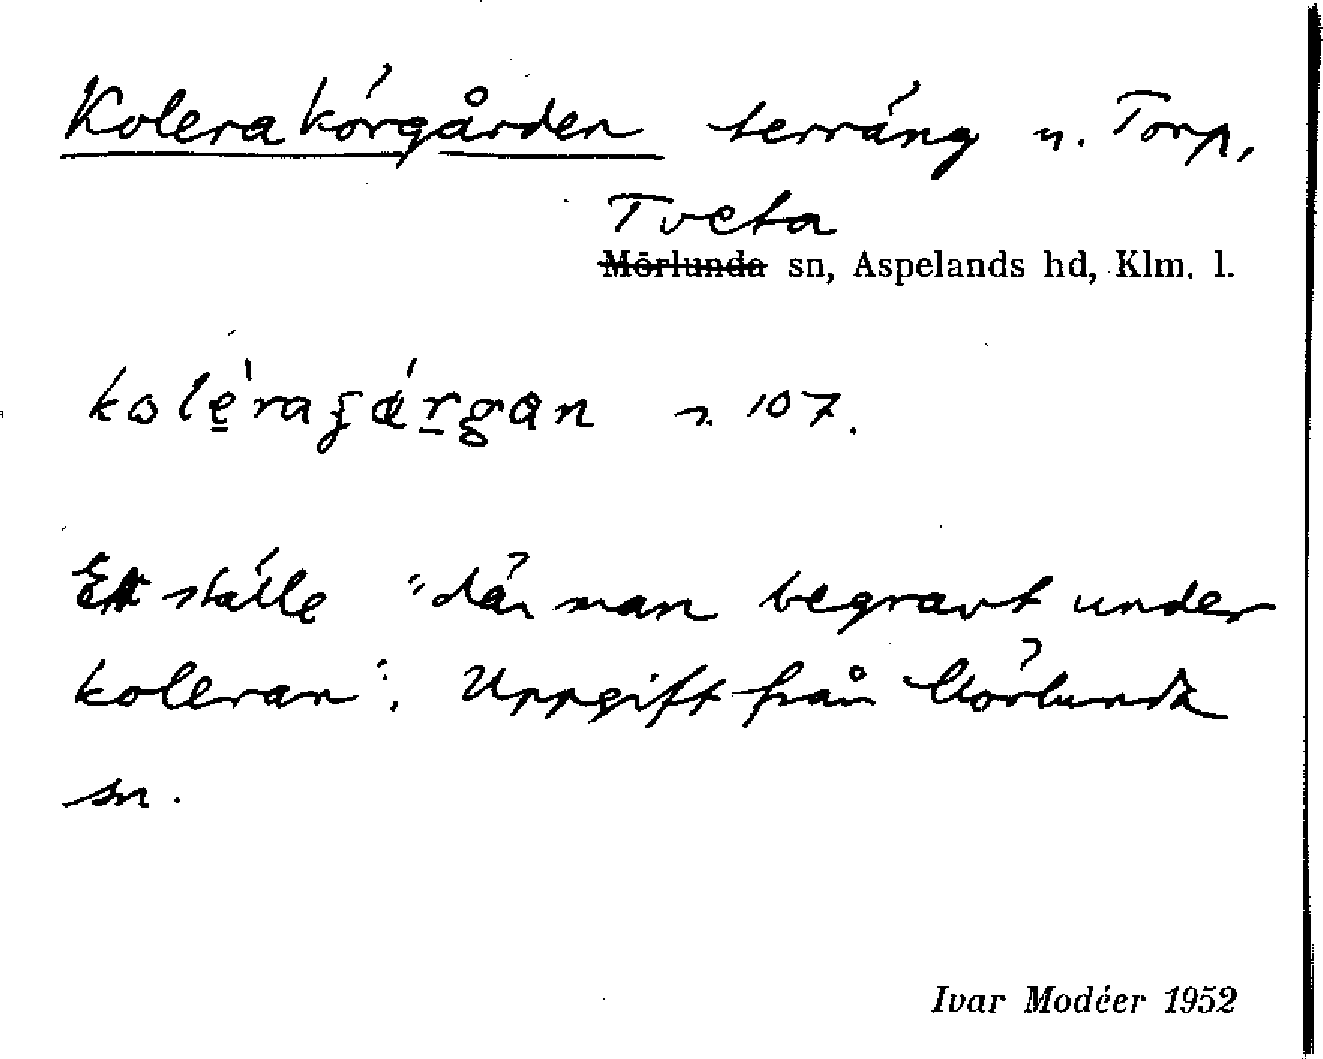 Kolerakörgården terräng n. Torp,
Tveta
Mörlunda sn, Aspelands hd, Klm. l.
n. 107.
Ett ställe "där man begravt under
koleran". Uppgift från Mörlunda
sn.
Ivar Modéer 1952